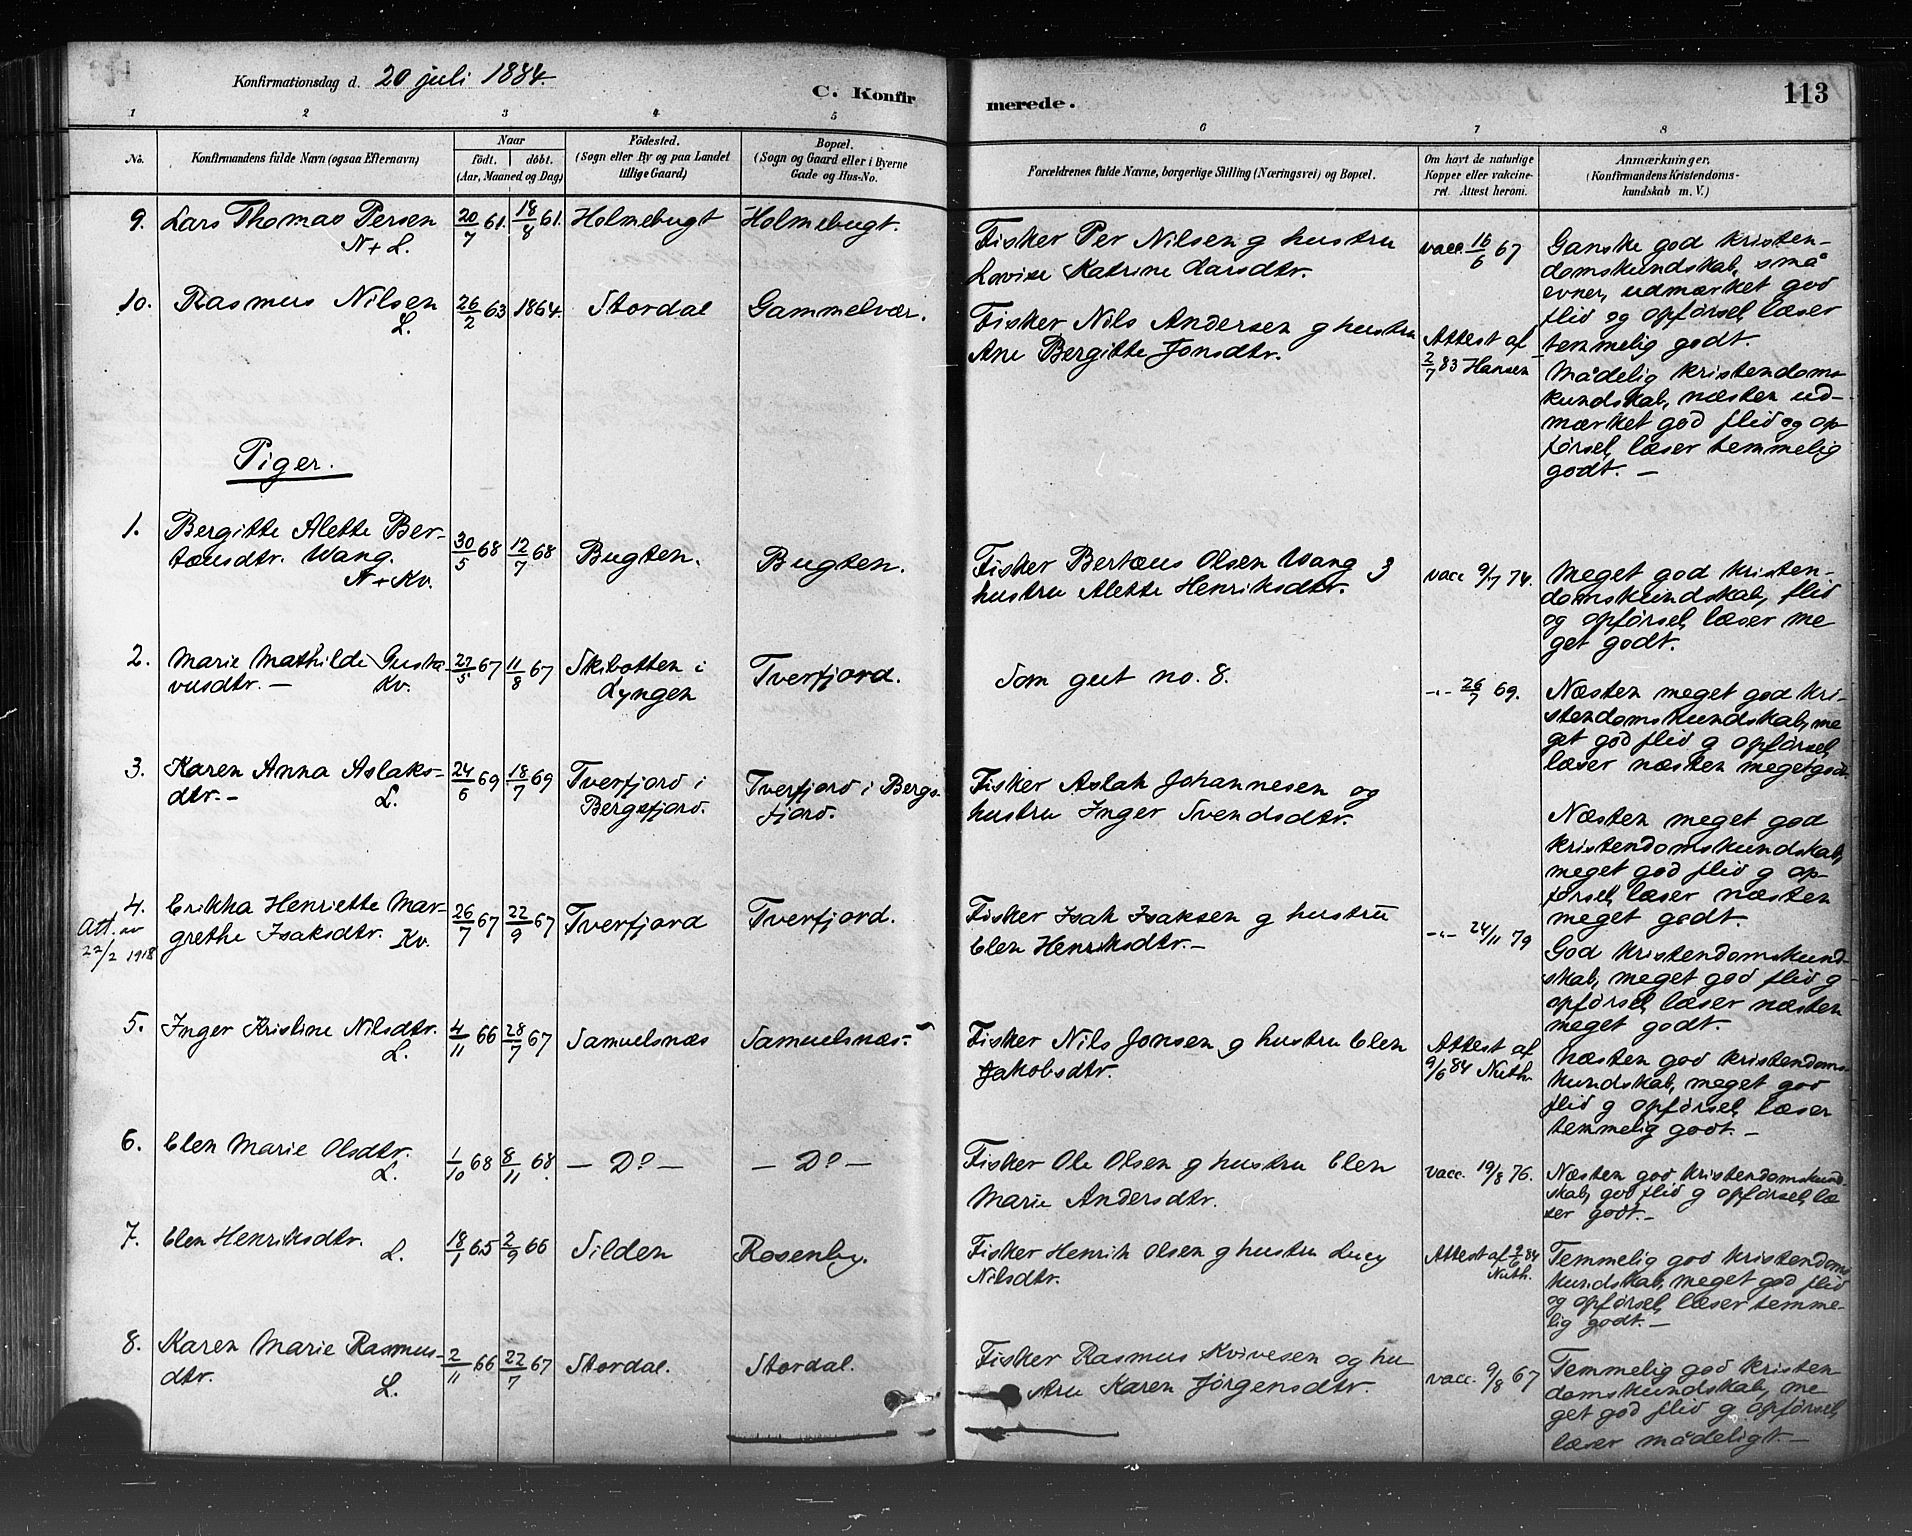 Konfirmationsdag d. 20 juli 1884.
C. Konfirmerede.
113
1 2 3 4 5 6 7 8
No.
Konfirmandens fulde Navn (ogsaa Efternavn)
Naar
födt. döbt.
(Aar, Maaned og Dag)
Födested.
(Sogn eller By og paa Landet
tillige Gaard)
Bopæl.
(Sogn og Gaard eller i Byerne
Gade og Hus-No.
Forældrenes fulde Navne, borgerlige Stilling (Næringsvei) og Bopæl.
Om havt de naturlige
Kopper eller vakcine-
ret. Attest herom.
Anmærkninger,
(Konfirmandens Kristendoms-
kundskab m. V.)
9. Lars Thomas Persen
N + L.
20/7 61. 18/8 61.
Holmebugt
Holmebugt.
Fisker Per Nilsen g hustru
Lovise Katrine Larsdtr.
vacc. 16/6 67
Ganske god kristen-
domskundskab, små
evner, udmærket god
flid og opförsel, læser
temmelig godt.
10. Rasmus Nilsen
L.
26/2 63 1864.
Stordal
Gammelvær.
Fisker Nils Andersen g hustru
Ane Bergitte Jonsdtr.
Attest af
2/7 83 Hansen
Mådelig kristendoms-
kundskab, næsten ud-
mærket god flid og op-
försel, læser temmelig
godt. —
Piger.
1. Bergitte Alette Ber-
tæusdtr. Wang.
N + Kv.
30/5 68 12/7 68
Bugten.
Bugten.
Fisker Bertæus Olsen Wang g
hustru Alette Henriksdtr.
vacc 9/7 74.
Meget god kristen-
domskundskab, flid
og opförsel, læser me
get godt.
2. Marie Mathilde Gusta
vusdtr. — Kv.
27/5 67 11/8 67
Skibotten i
Lyngen
Tverfjord.
Som gut no. 8.
-"- 26/7 69.
Næsten meget god kri-
stendomskundskab, me
get god flid g opförsel,
læser næsten meget godt.
3. Karen Anna Aslaks-
dtr. - L.
24/6 69 18/7 69
Tverfjord i
Bergsfjord.
Tverfjord i Bergs-
fjord.
Fisker Aslak Johannesen og
hustru Inger Svendsdtr.
Næsten meget god
kristendomskundskab,
meget god flid g op-
försel, læser næsten
meget godt.
4. Erikka Henriette Mar-
grethe Isaksdtr. Kv.
Att. av
22/2 1918
26/7 67 22/9 67
Tverfjord
Tverfjord.
Fisker Isak Isaksen g hustru
Elen Henriksdtr. -
-"- 24/11 79
God kristendomskund-
skab, meget god flid g
opförsel, læser næsten
meget godt.
5. Inger Kristine Nilsdtr.
L.
4/11 66 28/7 67
Samuelsnæs
Samuelsnæs. -
Fisker Nils Jonsen g hustru Elen
Jakobsdtr.
Attest af
9/6 84 Nuth.
Næsten god kristendoms-
kundskab, meget god
flid g opförsel, læser
temmelig godt. —
6. Elen Marie Olsdtr.
L.
1/10 68 8/11 68.
— Do —
— Do —
Fisker Ole Olsen g hustru Elen
Marie Andersdtr.
vacc. 19/8 76.
Næsten god kristendomskund-
skab, god flid g opförsel, læ
ser godt. —
7. Elen Henriksdtr. L.
18/1 65 2/9 66
Silden
Rosenby.
Fisker Henrik Olsen g hustru Lucy
Nilsdtr.
Attest af 2/6 84
Nuth.
Temmelig god kristendoms
kundskab, meget god flid
og opförsel, læser temme-
lig godt. —
8. Karen Marie Rasmus-
dtr. L.
2/11 66 22/7 67
Stordal.
Stordal.
Fisker Rasmus Kvivesen og hu
stru Karen Jörgensdtr.
vacc. 9/8 67
Temmelig god kristen
domskundskab, me
get god flid g opförsel,
læser mådeligt. —